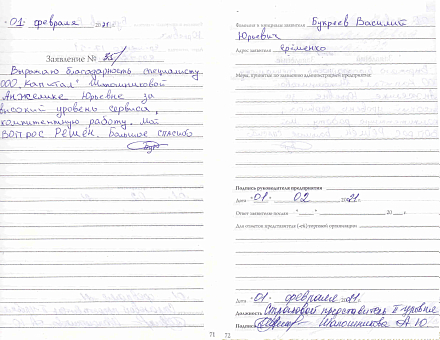 "01" февраля 2021 г.
Заявление № 35/
Выражаю благодарность специалисту
ООО "Капитал" Шапошниковой
Анжелике Юрьевне за
высокий уровень сервиса,
компитентную работу. Мой
вопрос решен. Большое спасибо
71
Фамилия и инициалы заявителя Букреев Василий
Юрьевич
Адрес заявителя Ерёменко
Меры, принятые по заявлению администрацией предприятия
Подпись руководителя предприятия
Дата "01" 02 2021 г.
Ответ заявителю послан " " 20 г.
Для отметок представителя (-ей) торговой организации
Дата "01" февраля 2021 г.
Должность Страховой представитель II уровня
Подпись Шапошникова А.Ю.
72